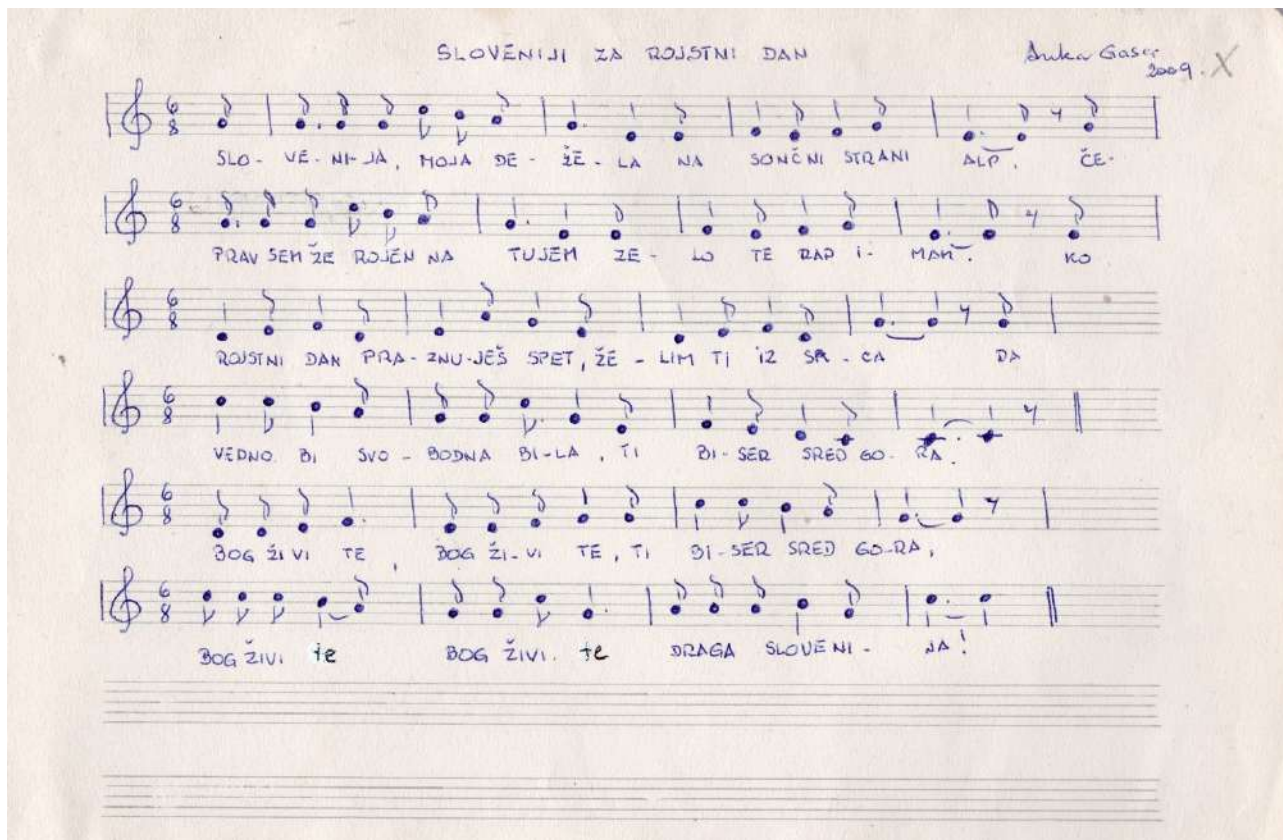 SLOVENIJI ZA ROJSTNI DAN
Anka Gaser
2009. X
SLO- VE-NI-JA, MOJA DE- ŽE-LA NA SONČNI STRANI ALP. ČE-
PRAV SEM ŽE ROJEN NA TUJEM ZE- LO TE RAD I- MAM. KO
ROJSTNI DAN PRA-ZNU-JEŠ SPET, ŽE-LIM TI IZ SR-CA DA
VEDNO BI SVO-BODNA BI-LA, TI BI-SER SRED GO-RA.
BOG ŽIVI TE, BOG ŽI-VI TE, TI BI-SER SRED GO-RA,
BOG ŽIVI te BOG ŽIVI. te DRAGA SLOVENI- JA!